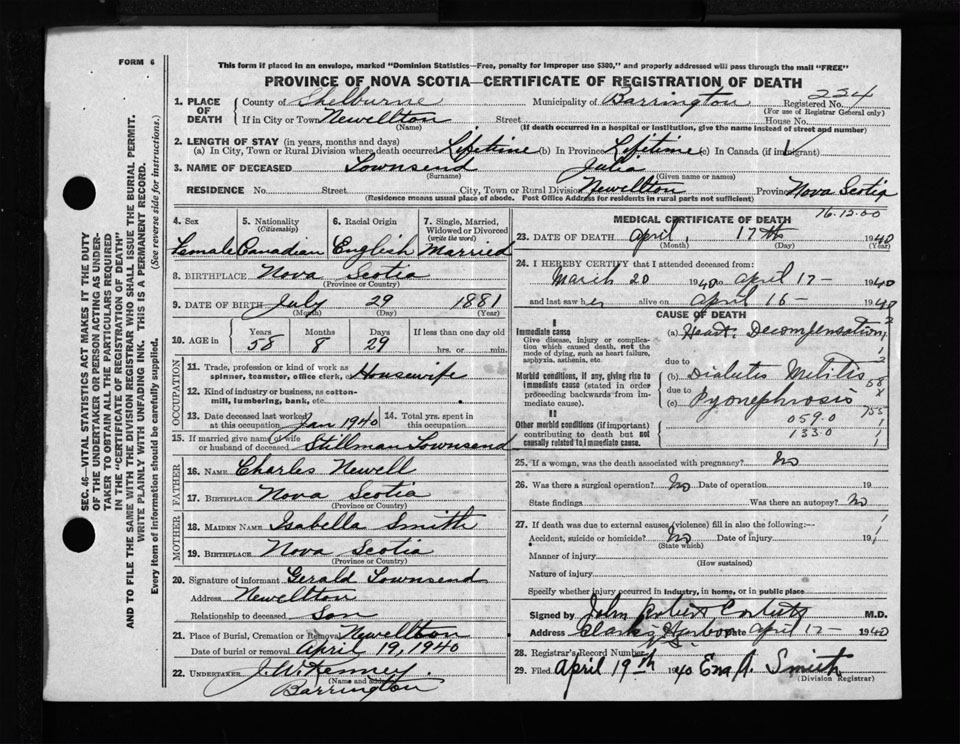 FORM 6
This form if placed in an envelope, marked "Dominion Statistics—Free, penalty for improper use $300," and properly addressed will pass through the mail "FREE"
PROVINCE OF NOVA SCOTIA—CERTIFICATE OF REGISTRATION OF DEATH
SEC. 46—VITAL STATISTICS ACT MAKES IT THE DUTY
OF THE UNDERTAKER OR PERSON ACTING AS UNDER-
TAKER TO OBTAIN ALL THE PARTICULARS REQUIRED
IN THE "CERTIFICATE OF REGISTRATION OF DEATH"
AND TO FILE THE SAME WITH THE DIVISION REGISTRAR WHO SHALL ISSUE THE BURIAL PERMIT.
WRITE PLAINLY WITH UNFADING INK. THIS IS A PERMANENT RECORD.
Every item of information should be carefully supplied. (See reverse side for instructions.)
1. PLACE OF DEATH County of Shelburne Municipality of Barrington Registered No. 224
(For use of Registrar General only)
If in City or Town Newellton Street House No.
(Name) (If death occurred in a hospital or institution, give the name instead of street and number)
2. LENGTH OF STAY (in years, months and days)
(a) In City, Town or Rural Division where death occurred Lifetime (b) In Province Lifetime (c) In Canada (if immigrant)
3. NAME OF DECEASED Townsend Julia
(Surname) (Given name or names)
RESIDENCE No. Street City, Town or Rural Division Newellton Province Nova Scotia
(Residence means usual place of abode. Post Office Address for residents in rural parts not sufficient)
76.12.00
4. Sex 5. Nationality 6. Racial Origin 7. Single, Married,
(Citizenship) Widowed or Divorced
(write the word)
Female Canadian English Married
8. BIRTHPLACE Nova Scotia
(Province or Country)
9. DATE OF BIRTH July 29 1881
(Month) (Day) (Year)
10. AGE in Years Months Days If less than one day old
58 8 29 hrs. or min.
OCCUPATION
11. Trade, profession or kind of work as
spinner, teamster, office clerk, etc. Housewife
12. Kind of industry or business, as cotton-
mill, lumbering, bank, etc.
13. Date deceased last worked 14. Total yrs. spent in
at this occupation Jan 1940 this occupation
15. If married give name of wife
or husband of deceased Stillman Townsend
FATHER
16. NAME Charles Newell
17. BIRTHPLACE Nova Scotia
(Province or Country)
MOTHER
18. MAIDEN NAME Isabella Smith
19. BIRTHPLACE Nova Scotia
(Province or Country)
20. Signature of informant Gerald Townsend
Address Newellton
Relationship to deceased Son
21. Place of Burial, Cremation or Removal Newellton
Date of burial or removal April 19, 1940
22. UNDERTAKER J. W. Kenney
(Name and address)
Barrington
MEDICAL CERTIFICATE OF DEATH
23. DATE OF DEATH April, 17th 1940
(Month) (Day) (Year)
24. I HEREBY CERTIFY that I attended deceased from:
March 20 1940 to April 17- 1940
and last saw her alive on April 16- 1940
CAUSE OF DEATH
Immediate cause (a) Heart. Decompensation
Give disease, injury or complica-
tion which caused death, not the
mode of dying, such as heart failure,
asphyxia, asthenia, etc.
due to
Morbid conditions, if any, giving rise to (b) Diabetes Melitis
immediate cause (stated in order due to
proceeding backwards from im- (c) Pyonephrosis
mediate cause).
059.0
Other morbid conditions (if important) 133.0
contributing to death but not
causally related to immediate cause.
25. If a woman, was the death associated with pregnancy? No
26. Was there a surgical operation? No Date of operation 19
State findings Was there an autopsy? No
27. If death was due to external causes (violence) fill in also the following:—
Accident, suicide or homicide? No Date of injury 19
(State which)
Manner of injury
(How sustained)
Nature of injury
Specify whether injury occurred in industry, in home, or in public place
Signed by John M.D.
Address Clark's Harbour Date April 17- 1940
N.S.
28. Registrar's Record Number
29. Filed April 19th 1940 Smith
(Division Registrar)